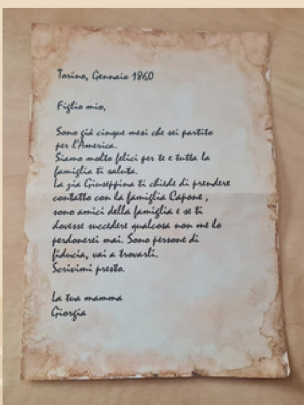 Torino, Gennaio 1860
Figlio mio,
Sono già cinque mesi che sei partito
per l'America.
Siamo molto felici per te e tutta la
famiglia ti saluta.
La zia Giuseppina ti chiede di prendere
contatto con la famiglia Capone ,
sono amici della famiglia e se ti
dovesse succedere qualcosa non me lo
perdonerei mai. Sono persone di
fiducia, vai a trovarli.
Scrivimi presto.
La tua mamma
Giorgia